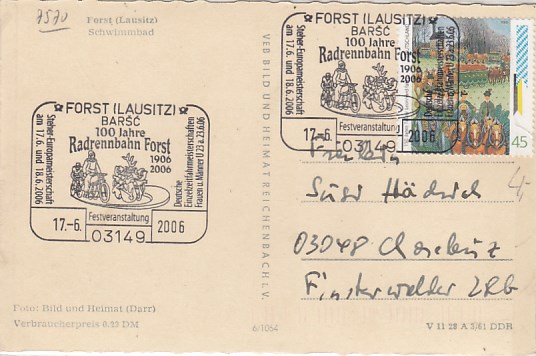 7570
Forst (Lausitz)
Schwimmbad
FORST (LAUSITZ)
BARŠĆ
100 Jahre
Radrennbahn Forst
1906
2006
Steher-Europameisterschaft
am 17.6. und 18.6.2006
Deutsche
Einzelzeitfahrmeisterschaften
Frauen u. Männer U 23 a. 23.6.06
17.-6.
Festveranstaltung
2006
03149
VEB BILD UND HEIMAT REICHENBACH I. V.
FORST (LAUSITZ)
BARŠĆ
100 Jahre
Radrennbahn Forst
1906
2006
Steher-Europameisterschaft
am 17.6. und 18.6.2006
Deutsche
17.-6.
Festveranstaltung
2006
03149
45
Susi
03048
Foto: Bild und Heimat (Darr)
Verbraucherpreis 0,23 DM
6/1064
V 11 28 A 3/61 DDR